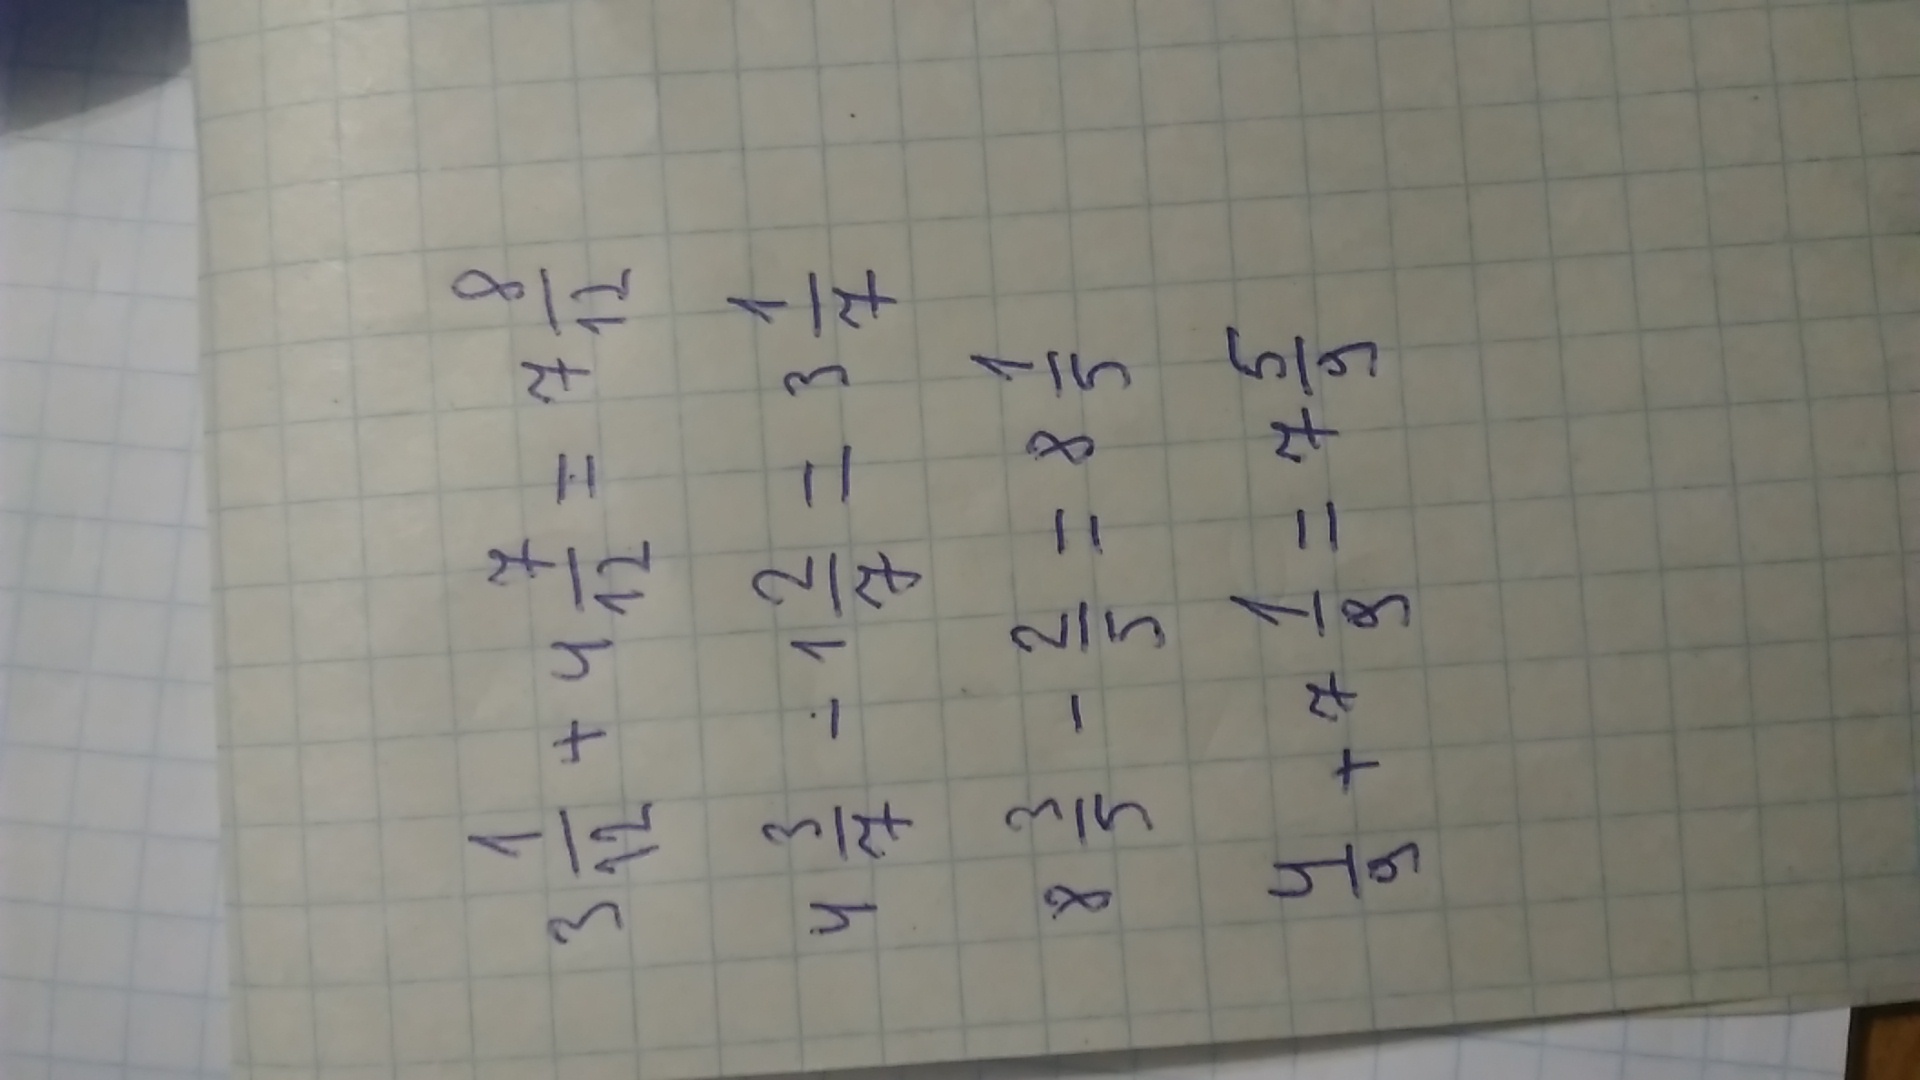 3 1/12 + 4 7/12 = 7 8/12
4 3/7 - 1 2/7 = 3 1/7
8 3/5 - 2/5 = 8 1/5
4/9 + 7 1/9 = 7 5/9